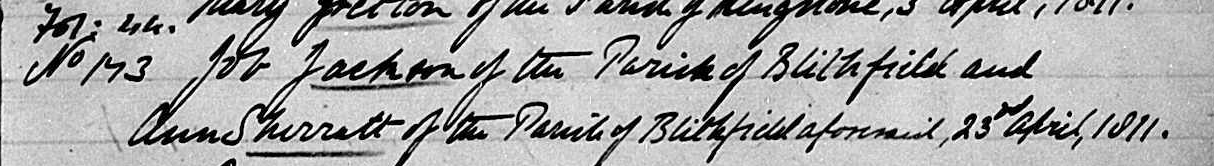 Mary Gretton of the Parish of Kingstone, 3 April, 1811.
Fol: 44.
No 173 Job Jackson of the Parish of Blithfield and
Ann Sherratt of the Parish of Blithfield aforesaid, 23rd April, 1811.